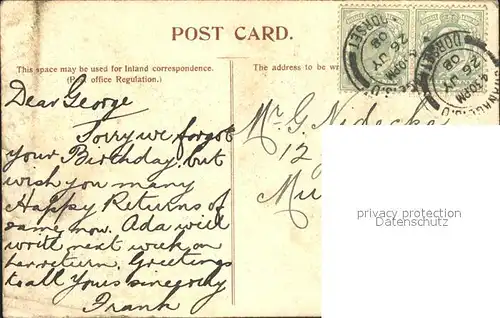 POST CARD.
This space may be used for Inland correspondence.
(P office Regulation.)
The address to be wr
DORSET
4.40PM
26 JY
08
DORSET
4.40PM
26 JY
08
Dear George
Sorry we forgot
your Birthday. but
wish you many
Happy Returns of
same now. Ada will
write next week on
her return. Greetings
to all Yours sincerely
Frank
Mr G. Nidecke
12
Mu
privacy protection
Datenschutz